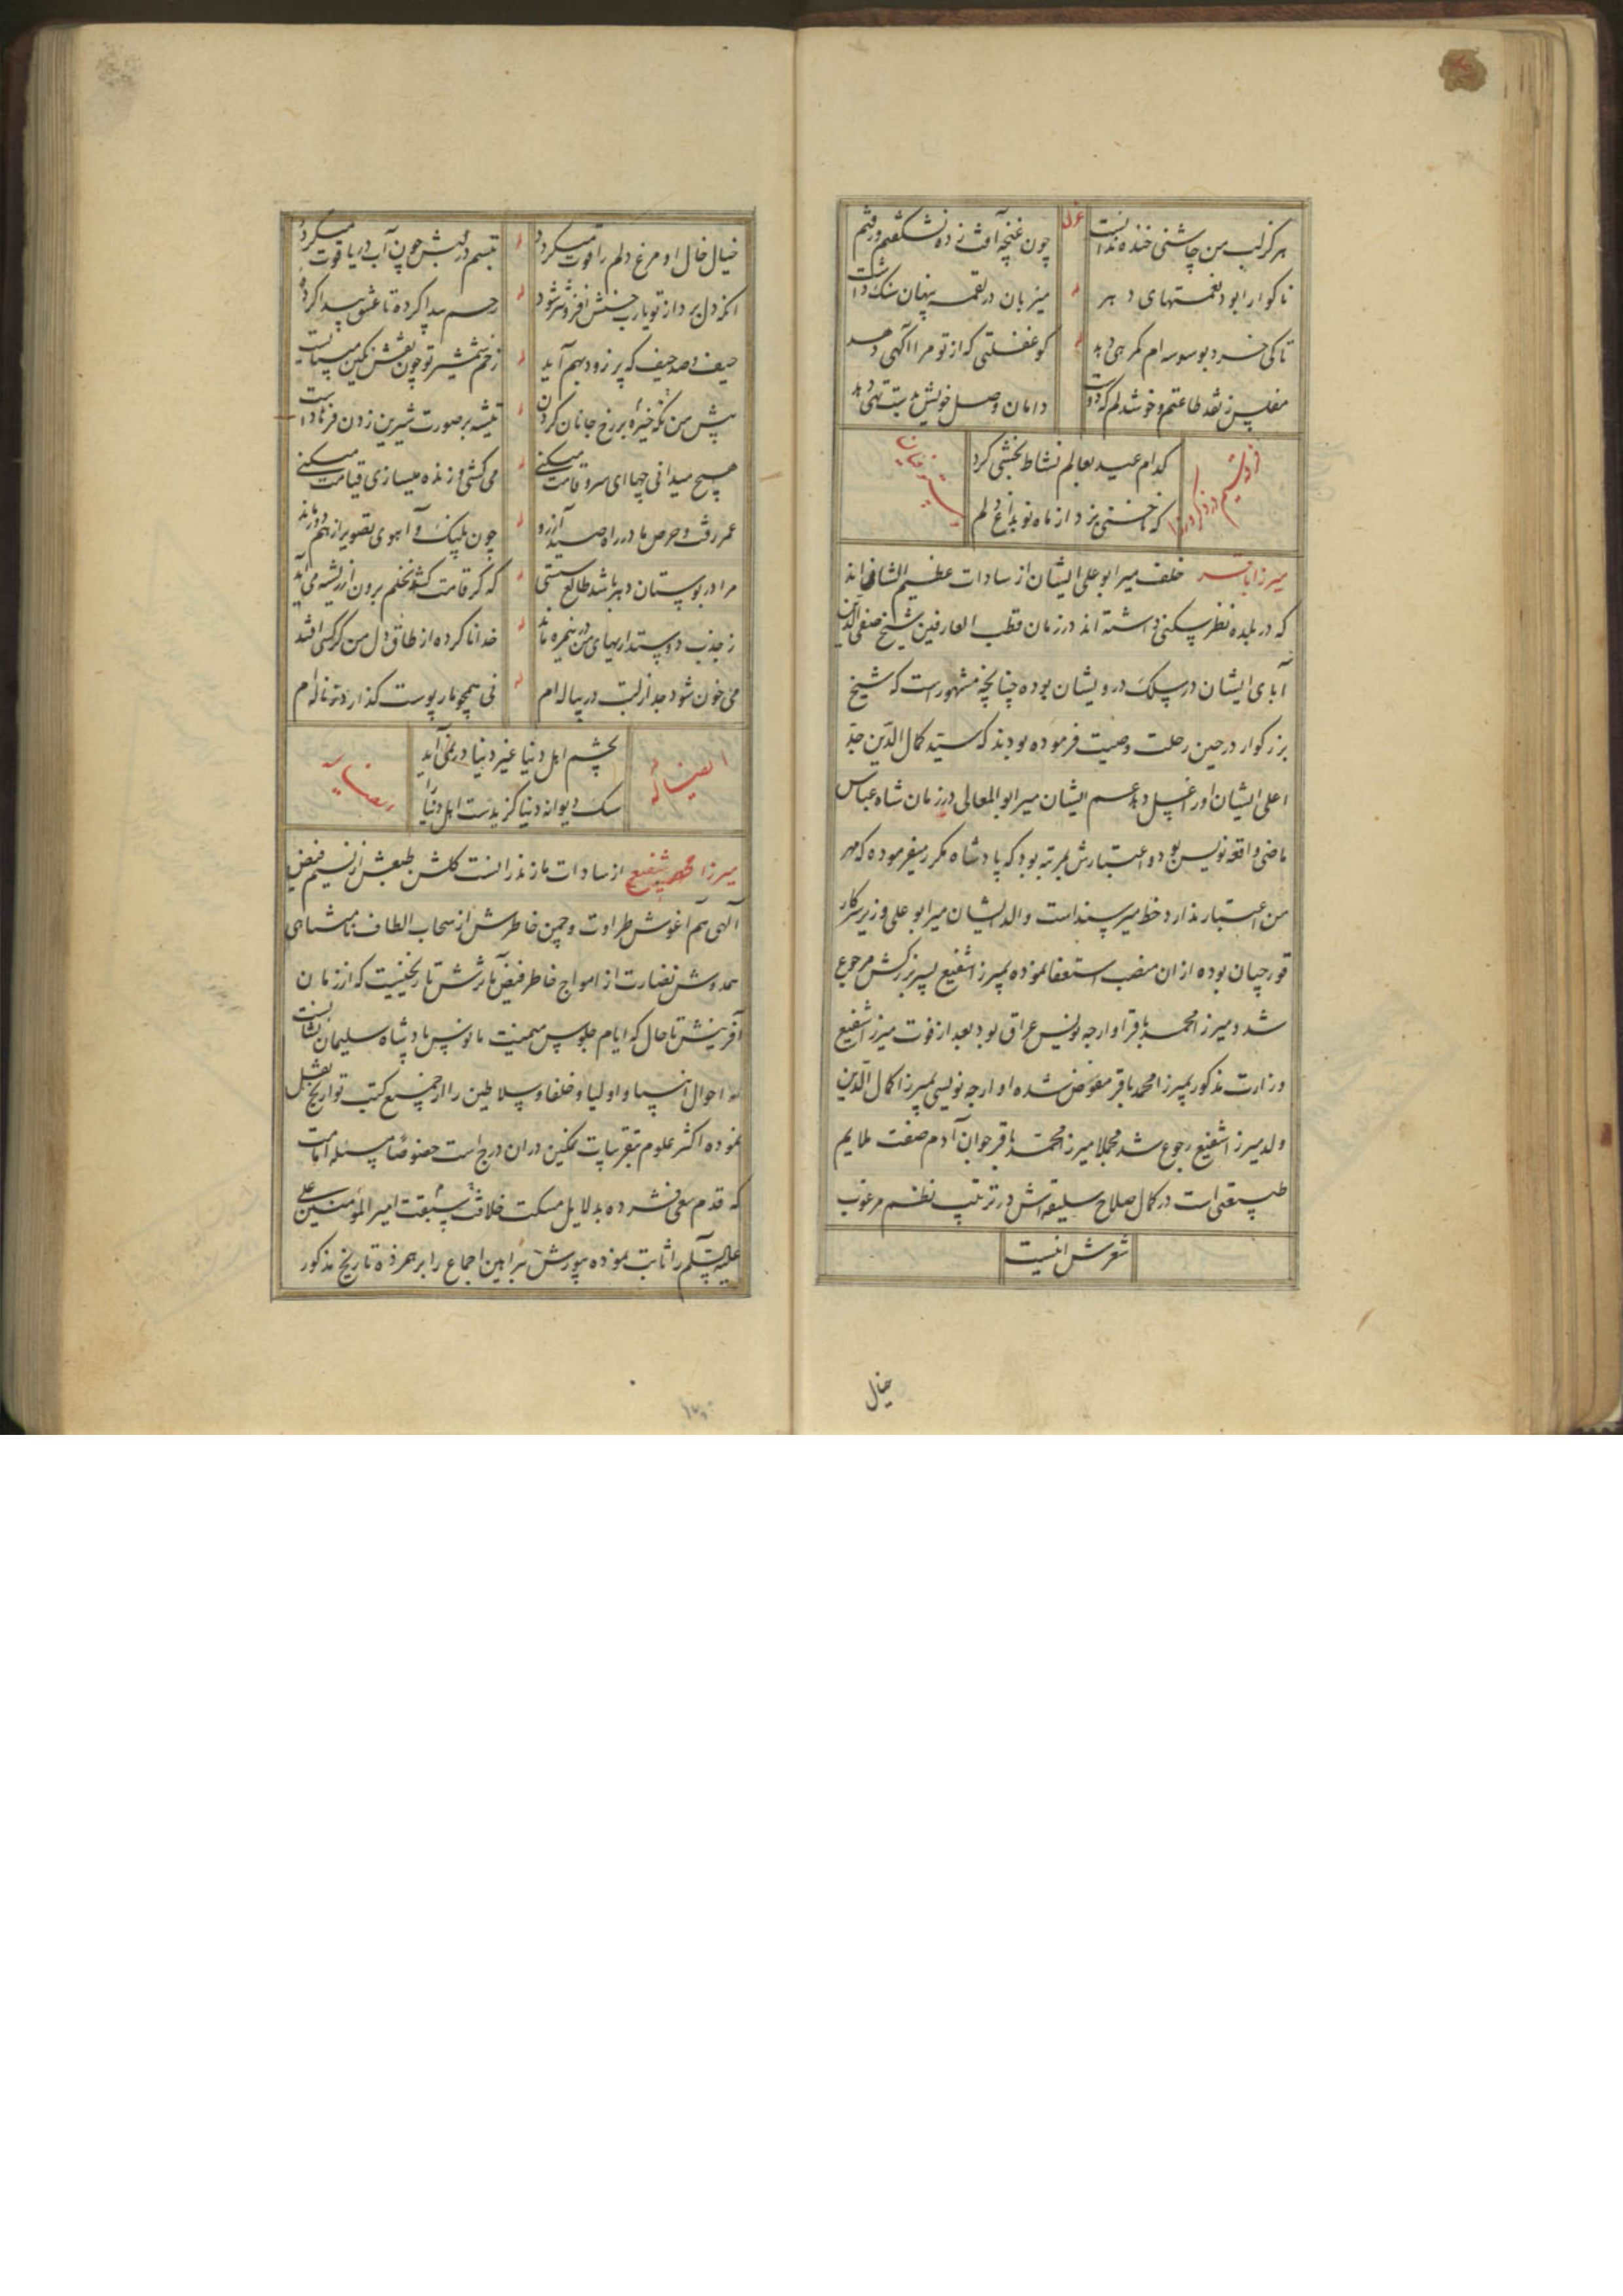 هرگز لب من چاشنی خنده ندانست
غزل
چون غنچه آفت زده نشکفتم و رفتم
ناگوارا بود نعمتهای دهر
میزبان در لقمه پنهان سنگ داشت
تا کی خرد بوسوسه ام گمرهی دهد
کو غفلتی که از تو مرا آگهی دهد
مفلس ز نقد طاعتم و خوشدلم که دوست
دامان وصل خویش بدست تهی دهد
کدام عید بعالم نشاط بخشی کرد
که ناخنی نزد از ماه نو بداغ دلم
میرزا باقر خلف میر ابو علی ایشان از سادات عظیم الشان اند
که در بلده نطنز سکنی داشته اند در زمان قطب العارفین شیخ صفی الدین
آبای ایشان در سلک درویشان بوده چنانچه مشهور است که شیخ
بزرگوار در حین رحلت وصیت فرموده بودند که سید کمال الدین جد
اعلی ایشان او را غسل دهد عم ایشان میر ابوالمعالی در زمان شاه عباس
ماضی واقعه نویس بود و اعتبارش بمرتبه بود که پادشاه مکرر میفرموده که مهر
من اعتبار ندارد خط میر سند است والد ایشان میر ابو علی وزیر سرکار
قورچیان بوده از ان منصب استعفا نموده بمیرزا شفیع پسر بزرگش مرجوع
شد و میرزا محمد باقر اوارجه نویس عراق بود بعد از فوت میرزا شفیع
وزارت مذکور بمیرزا محمد باقر مفوض شده اوارجه نویسی بمیرزا کمال الدین
ولد میرزا شفیع رجوع شد مجملا میرزا محمد باقر جوان آدم صفت ملایم
طبیعتی است در کمال صلاح سلیقه اش در ترتیب نظم مرغوب
شعرش اینست
خیال
خیال خال او مرغ دلم را قوت میگردد
تبسم در لبش چون آب در یاقوت میگردد
آنکه دل برد از تو یارب حسنش افزونتر شود
رحم پیدا کرده تا عشق پیدا کرده
حیف و صد حیف که پر زود بهم آید
زخم شمشیر تو چون نقش نگین میبایست
پیش من نگه خیره بر رخ جانان کردن
تیشه بر صورت شیرین زدن فرهاد است
هیچ میدانی چها ای سرو قامت میکنی
می کشی و زنده میسازی قیامت میکنی
عمر رفت و حرص ما در راه صید آرزو
چون پلنگ و آهوی تصویر از هم دور ماند
مرا در بوستان دهر باشد طالع پستی
که گر قامت کشد نخلم برون از ریشه می آید
ز جذب دوستداریهای من در نیمره ماند
خدا ناکرده از طاق دل من گر کسی افتد
می خون شود جدا ز لبت در پیاله ام
نی همچو مار پوست گذارد ز ناله ام
ایضا له
بچشم اهل دنیا غیر دنیا در نمی آید
سگ دیوانه دنیا گزیدست اهل دنیا را
میرزا محمد شفیع از سادات مازندرانست گلشن طبعش از نسیم فیض
الهی هم آغوش طراوت و چمن خاطرش از سحاب الطاف نامتناهی
همدوش نضارت از امواج خاطر فیض مآثرش تاریخیست که از زمان
آفرینش تا حال که ایام جلوس میمنت مانوس پادشاه سلیمان نشانست
احوال انبیا و اولیا و خلفا و سلاطین را از جمیع کتب تواریخ نقل
نموده اکثر علوم بتقریبات نمکین در ان درج است خصوصا مسئله امامت
که قدم سعی فشرده بدلایل مسکت خلافت امیر المؤمنین علی
علیه السلم را ثابت نموده بیورش براهین اجماع را بر هم زده تاریخ مذکور